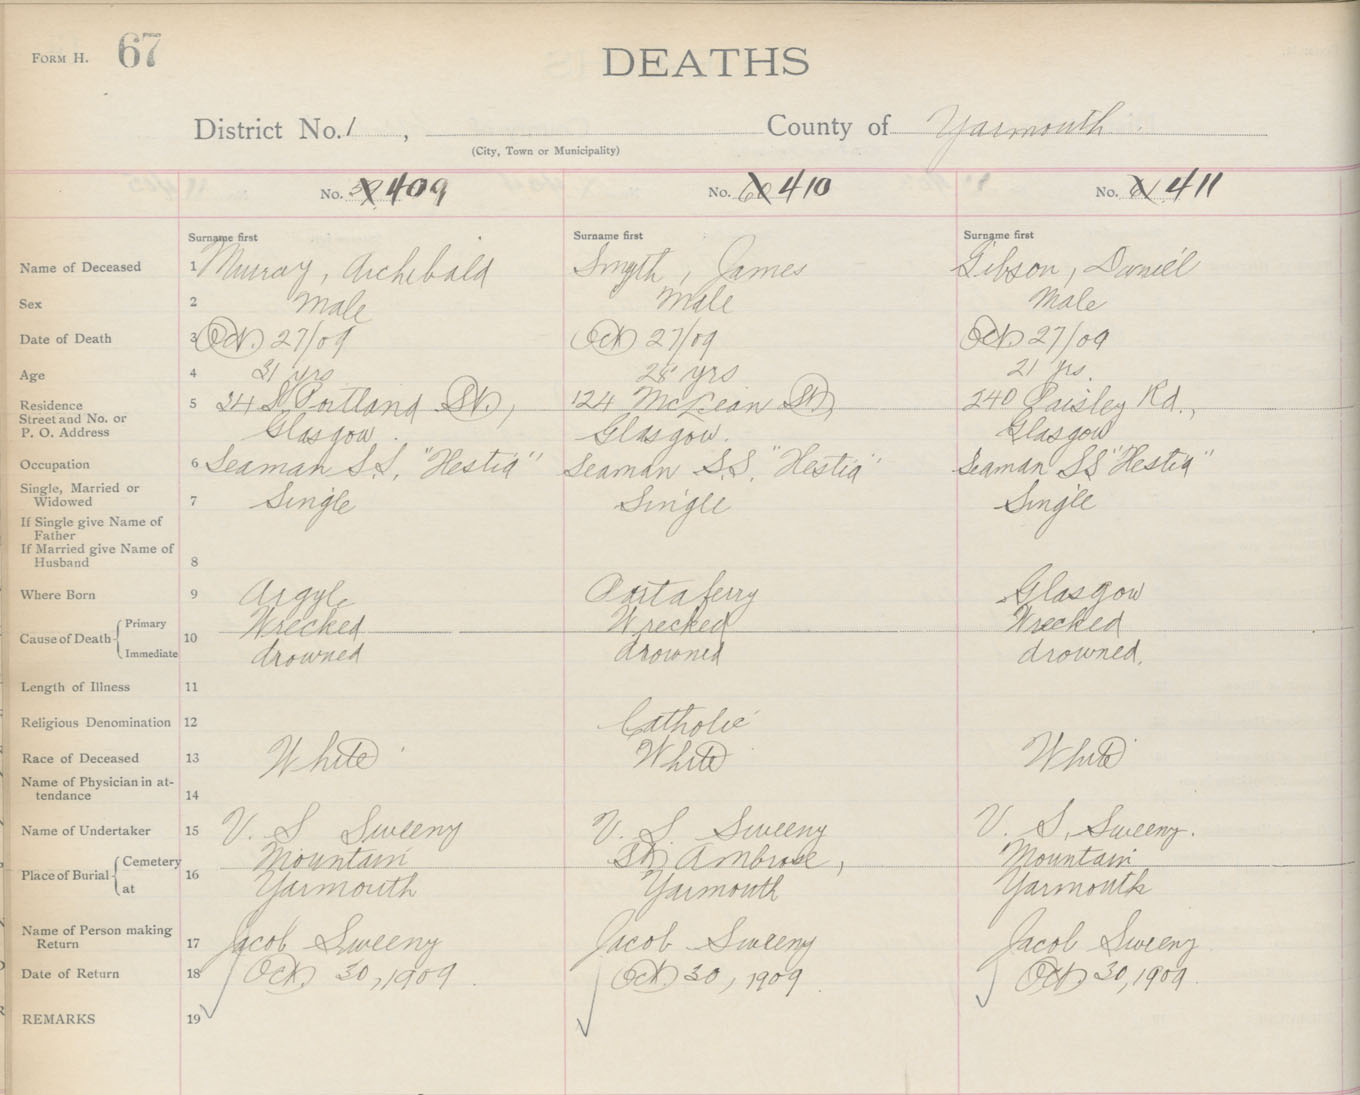 Form H. 67
DEATHS
District No. 1 , County of Yarmouth.
(City, Town or Municipality)
No. 409 No. 60 410 No. 61 411
Surname first Surname first Surname first
Name of Deceased 1 Murray, Archibald Smyth, James Gibson, Daniel
Sex 2 Male Male Male
Date of Death 3 Oct. 27/09 Oct 27/09 Oct. 27/09
Age 4 31 yrs 28 yrs 21 yrs.
Residence 5 34 S Portland St., 124 McLean St, 240 Paisley Rd.,
Street and No. or
P. O. Address Glasgow. Glasgow. Glasgow
Occupation 6 Seaman S.S. "Hestia" Seaman S.S. "Hestia" Seaman SS "Hestia"
Single, Married or
Widowed 7 Single Single Single
If Single give Name of
Father
If Married give Name of
Husband 8
Where Born 9 Argyle Portaferry Glasgow
Primary Wrecked Wrecked Wrecked
Cause of Death 10
Immediate drowned drowned drowned.
Length of Illness 11
Religious Denomination 12 Catholic
Race of Deceased 13 White White White
Name of Physician in at-
tendance 14
Name of Undertaker 15 V. S Sweeny V. S. Sweeny V. S. Sweeny.
Cemetery Mountain St. Ambrose, Mountain
Place of Burial 16
at Yarmouth Yarmouth Yarmouth
Name of Person making
Return 17 Jacob Sweeny Jacob Sweeny Jacob Sweeny
Date of Return 18 Oct. 30, 1909. Oct. 30, 1909. Oct. 30, 1909.
REMARKS 19